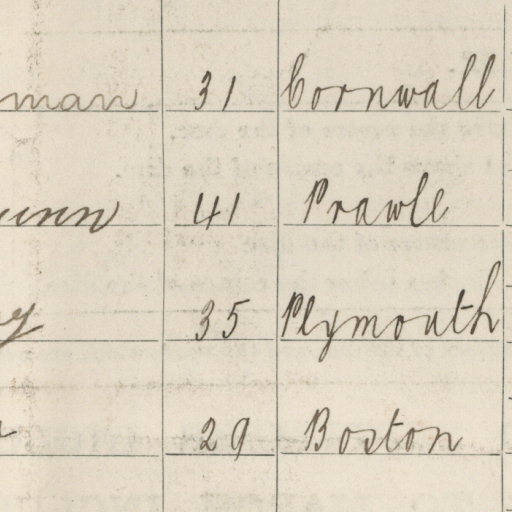 man 31 Cornwall
unn 41 Prawle
y 35 Plymouth
29 Boston